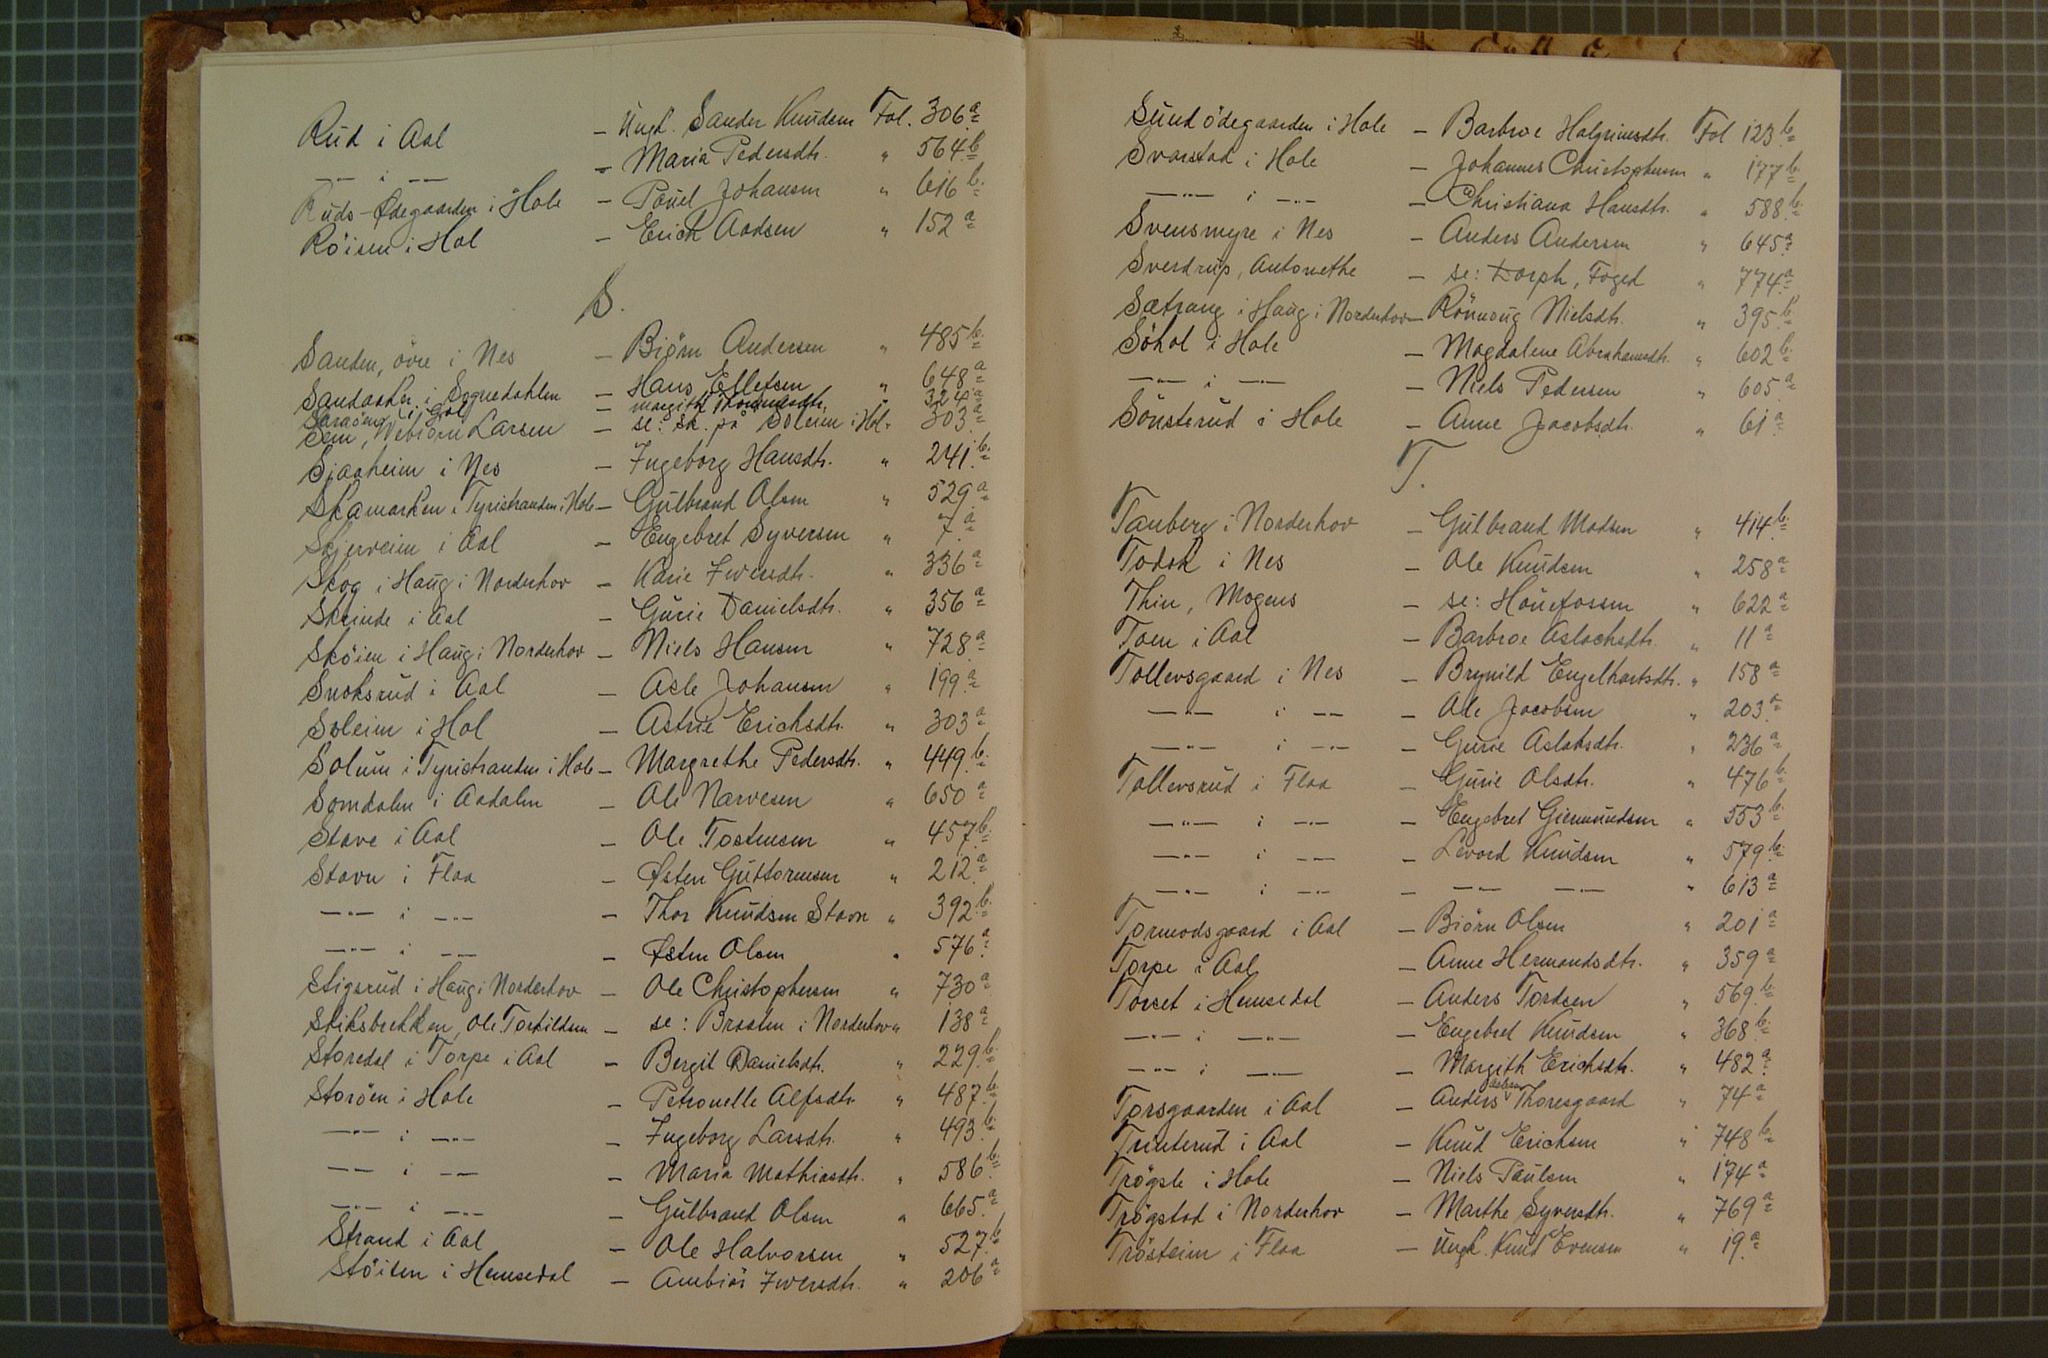 Rud i Aal — Ungk. Sander Knudsen Fol. 306 a
—"— i —"— — Maria Pedersdtr. " 564 b.
Ruds-Ødegaarden i Hole — Povel Johansen " 616 b.
Röisen i Hol — Erich Aadsen " 152 a
S.
Sanden, övre i Nes — Biörn Andersen " 485 b.
Sandaker i Sognedahlen — Hans Ellefsen " 648 a
i Gol — Margith Thommesdtr. " 324 a
Sem, Webiörn Larsen — se: Sk. på Soleim i Hol " 303 a
Sjaaheim i Nes — Ingeborg Hansdtr. " 241 b.
Skamarken i Tyristranden i Hole — Gulbrand Olsen " 529 a
Skjerveim i Aal — Engebret Syversen " 7 a
Skog i Haug i Norderhov — Karie Iwersdtr. " 336 a
Skrinde i Aal — Gurie Danielsdtr. " 356 a
Sköien i Haug i Norderhov — Niels Hansen " 728 a
Snoksrud i Aal — Asle Johansen " 199 a
Soleim i Hol — Astrie Erichsdtr. " 303 a
Solum i Tyristranden i Hole — Margrethe Pedersdtr. " 449 b.
Somdalen i Aadalen — Ole Narvesen " 650 a
Stave i Aal — Ole Tostensen " 457 b.
Stavn i Flaa — Østen Guttormsen " 212 a
—"— i —"— — Thor Knudsen Stavn " 392 b.
—"— i —"— — Østen Olsen " 576 a
Stigsrud i Haug i Norderhov — Ole Christophersen " 730 a
Stiksbrekken, Ole Torkildsen — se: Braaten i Norderhov " 138 a
Storedal i Torpe i Aal — Bergit Danielsdtr. " 229 b.
Storöen i Hole — Petronelle Alfsdtr " 487 b.
—"— i —"— — Ingeborg Larsdtr. " 493 b.
—"— i —"— — Maria Mathiasdtr. " 586 b.
—"— i —"— — Gulbrand Olsen " 665 a
Strand i Aal — Ole Halvorsen " 527 b
Stöiten i Hemsedal — Ambiör Iwersdtr. " 206 a
Sundödegaarden i Hole — Barbroe Halgrimsdtr. Fol 123 b
Svarstad i Hole — Johannes Christophersen " 177 b.
—"— i —"— — Christiana Hansdtr. " 588 b.
Svensmyre i Nes — Anders Andersen " 645 a
Sverdrup, Antonethe — se: Dorph, Foged " 774 a
Sætrang i Haug i Norderhov — Rönnoug Nielsdtr. " 395 b.
Söhol i Hole — Magdalene Abrahamsdtr. " 602 b.
—"— i —"— — Niels Pedersen " 605 a
Sönsterud i Hole — Anne Jacobsdtr. " 61 a
T.
Tanberg i Norderhov — Gulbrand Madsen " 414 b.
Todok i Nes — Ole Knudsen " 258 a
Thin, Mogens — se: Hönefossen " 622 a
Toen i Aal — Barbroe Aslachsdtr. " 11 a
Tollevsgaard i Nes — Brynild Engelhartsdtr. " 158 a
—"— i —"— — Ole Jacobsen " 203 a
—"— i —"— — Gurie Aslaksdtr. " 236 a
Tollevsrud i Flaa — Gurie Olsdtr. " 476 b
—"— i —"— — Engebret Giermundsen " 553 b.
—"— i —"— — Levord Knudsen " 579 b.
—"— i —"— — —"— —"— " 613 a
Tormodsgaard i Aal — Biörn Olsen " 201 a
Torpe i Aal — Anne Hermandsdtr. " 359 a
Torset i Hemsedal — Anders Tordsen " 569 b.
—"— i —"— — Engebret Knudsen " 368 b.
—"— i —"— — Margith Erichsdtr. " 482 a
Torsgaarden i Aal — Anders Thoresgaard " 74 a
Trinterud i Aal — Knud Erichsen " 748 b.
Trögsle i Hole — Niels Paulsen " 174 a
Trögstad i Norderhov — Marthe Syversdtr. " 769 a
Trösteim i Flaa — Ungk. Knud Evensen " 19 a